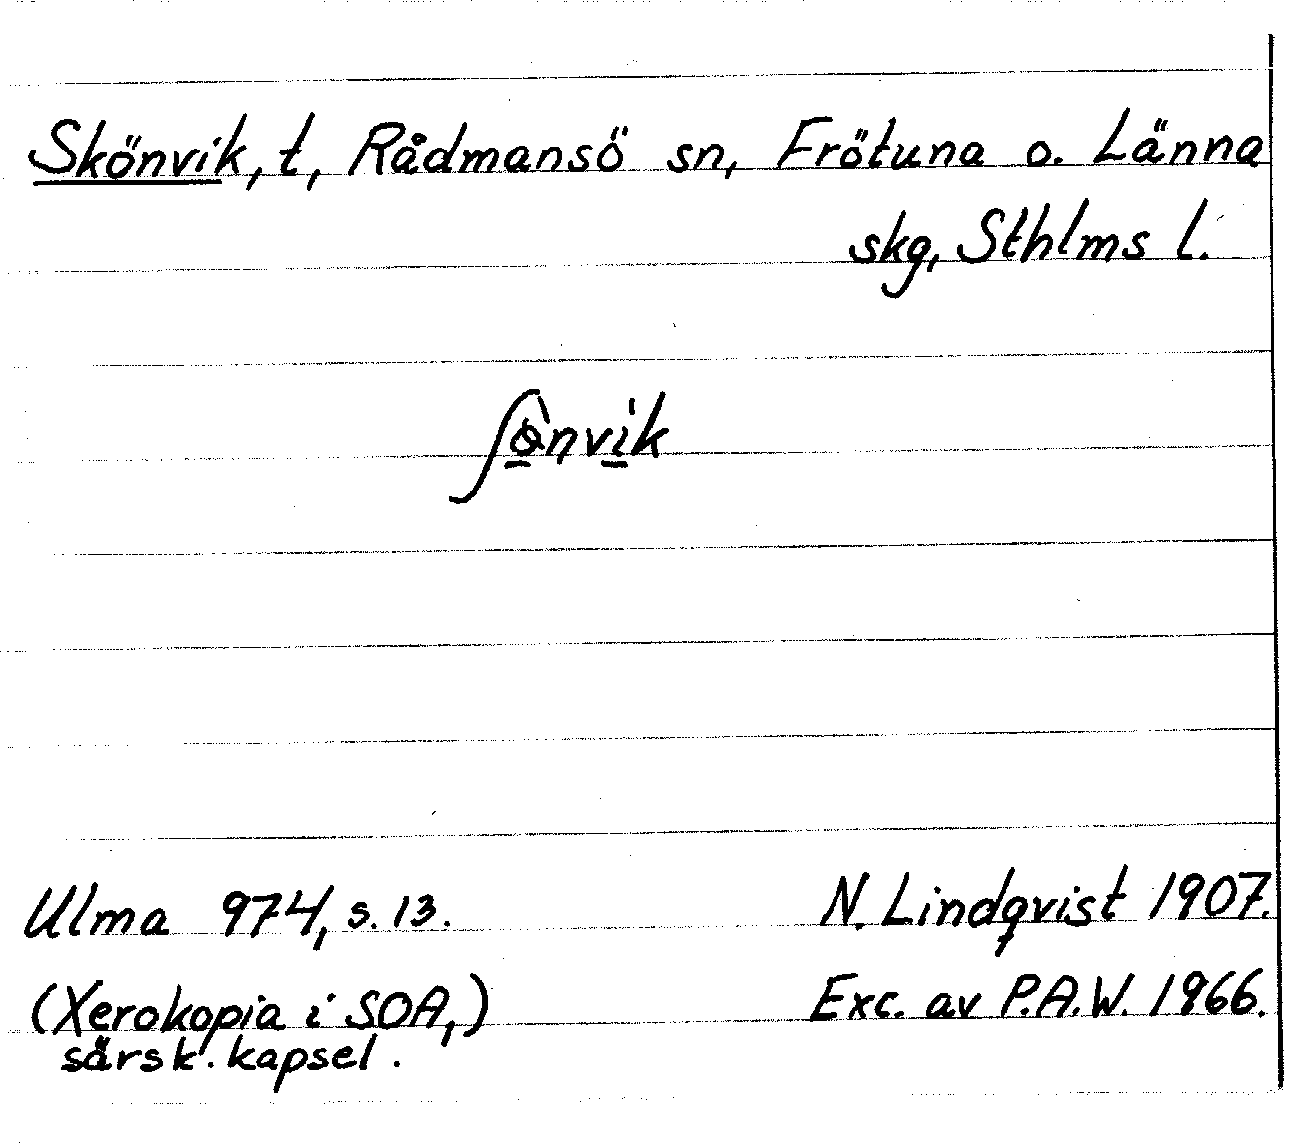 Skönvik, t, Rådmansö sn, Frötuna o. Länna
skg, Sthlms l.
ʃö̀nvìk
Ulma 974, s. 13.
N. Lindqvist 1907.
(Xerokopia i SOA,)
särsk. kapsel.
Exc. av P.A.W. 1966.